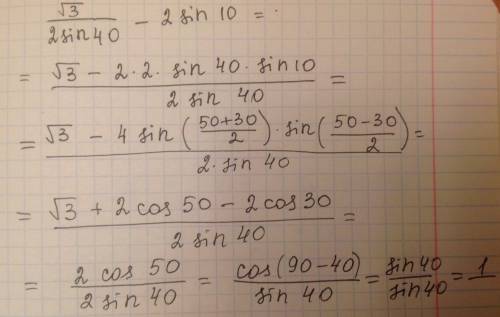 √3/(2 sin 40) − 2 sin 10 =
= (√3 − 2·2·sin 40·sin 10)/(2 sin 40) =
= (√3 − 4 sin((50+30)/2)·sin((50−30)/2))/(2·sin 40) =
= (√3 + 2 cos 50 − 2 cos 30)/(2 sin 40) =
= (2 cos 50)/(2 sin 40) = cos(90−40)/(sin 40) = sin 40/sin 40 = 1